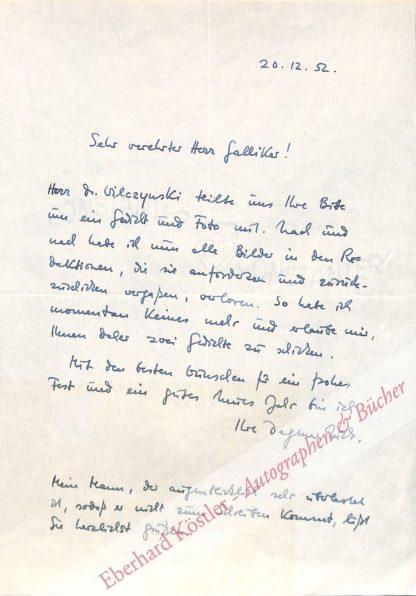 20.12.52.
Sehr verehrter Herr Galliker!
Herr Dr. Wilczynski teilte uns Ihre Bitte
um ein Gedicht und Foto mit. Nach und
nach habe ich nun alle Bilder in den Re-
daktionen, die sie anforderten und zurück-
zuschicken vergaßen, verloren. So habe ich
momentan keines mehr und erlaube mir,
Ihnen daher zwei Gedichte zu schicken.
Mit den besten Wünschen für ein frohes
Fest und ein gutes Neues Jahr bin ich
Ihre Dagmar
Mein Mann, der augenblicklich sehr überlastet
ist, sodaß er nicht zum Schreiben kommt, läßt
Sie herzlichst grüßen.
Eberhard Köstler - Autographen & Bücher